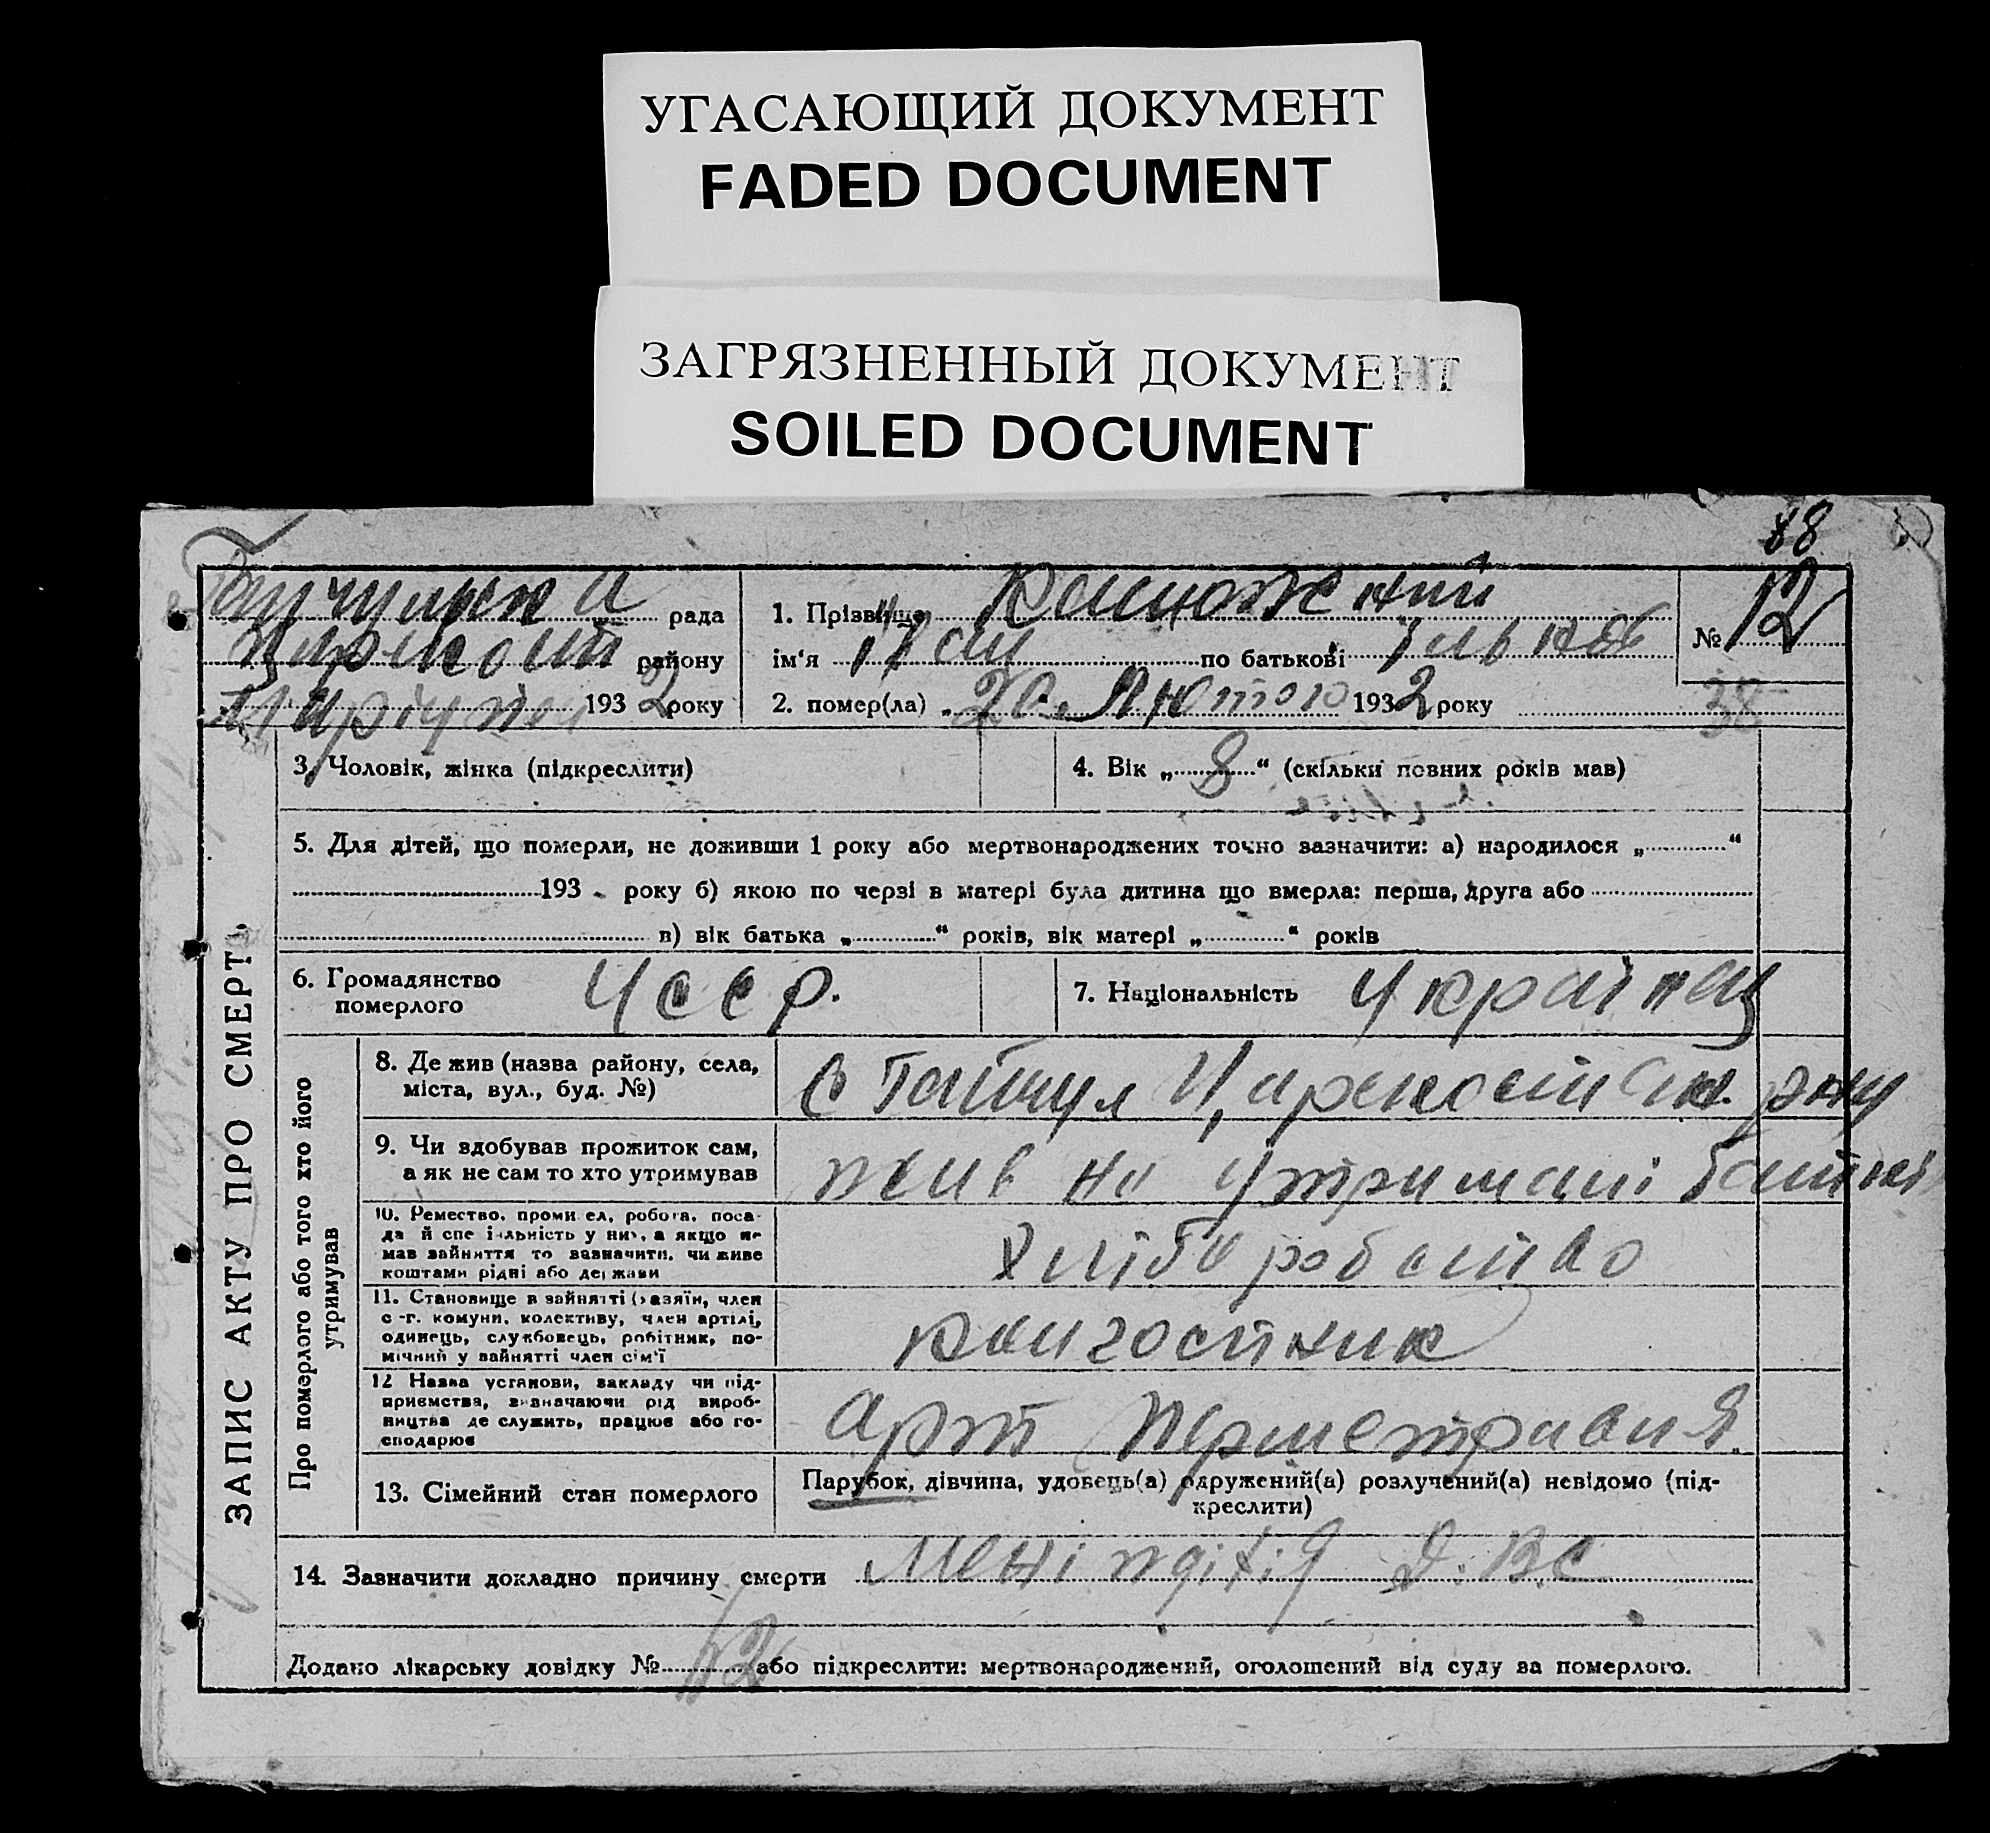 УГАСАЮЩИЙ ДОКУМЕНТ
FADED DOCUMENT
ЗАГРЯЗНЕННЫЙ ДОКУМЕНТ
SOILED DOCUMENT
88
рада
району
193 2 року
1. Прізвище
№ 12
ім'я по батькові
2. помер(ла) „20 Лютого 1932 року
38
ЗАПИС АКТУ ПРО СМЕРТЬ
3. Чоловік, жінка (підкреслити)
4. Вік „ 8 “ (скільки повних років мав)
5. Для дітей, що померли, не доживши 1 року або мертвонароджених точно зазначити: а) народилося „ “
193 року б) якою по черзі в матері була дитина що вмерла: перша, друга або
в) вік батька „ “ років, вік матері „ “ років
6. Громадянство померлого Усср.
7. Національність Українец
Про померлого або того хто його утримував
8. Де жив (назва району, села,
міста, вул., буд. №)
с Гайчул Царекост
9. Чи вдобував прожиток сам,
а як не сам то хто утримував
жив на утримані батькі
10. Ремество, промисел, робота, поса-
да й спеціяльність у них, а якщо не
мав зайняття то зазначити, чи живе
коштами рідні або держави
Хліборобство
11. Становище в зайнятті (хазяїн, член
с.-г. комуни, колективу, член артілі,
одинець, службовець, робітник, по-
мічний у зайнятті член сім'ї
колгостник
12 Назва установи, закладу чи під-
приємства, визначаючи рід вироб-
ництва де служить, працює або го-
сподарює
арт Першетравня.
13. Сімейний стан померлого
Парубок, дівчина, удовець(а) одружений(а) розлучений(а) невідомо (під-
креслити)
14. Зазначити докладно причину смерти
Додано лікарську довідку № 12 або підкреслити: мертвонароджений, оголошений від суду за померлого.